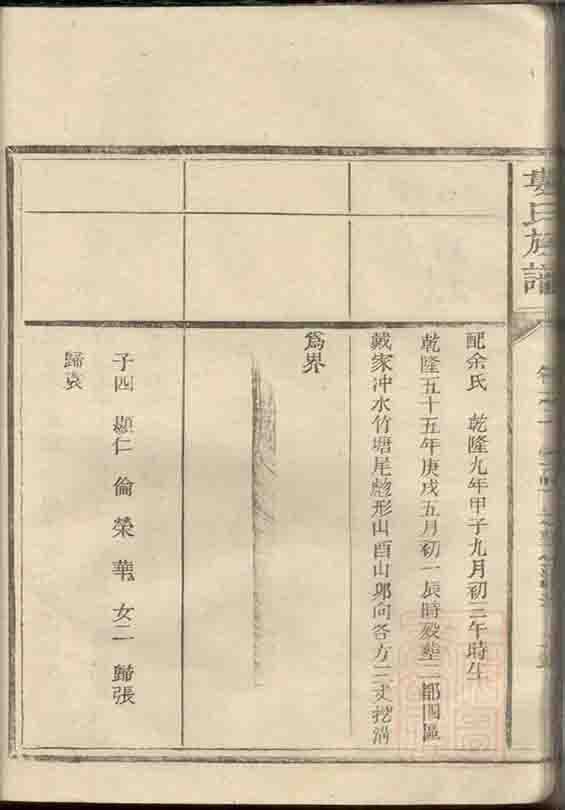 氏族譜
配余氏 乾隆九年甲子九月初三午時生
乾隆五十五年庚戌五月初一辰時歿塟二都四區
戴家冲水竹塘尾形山酉山卯向各方二丈挖溝
為界
子四 顯仁 倫 榮 華 女二 歸張
歸袁